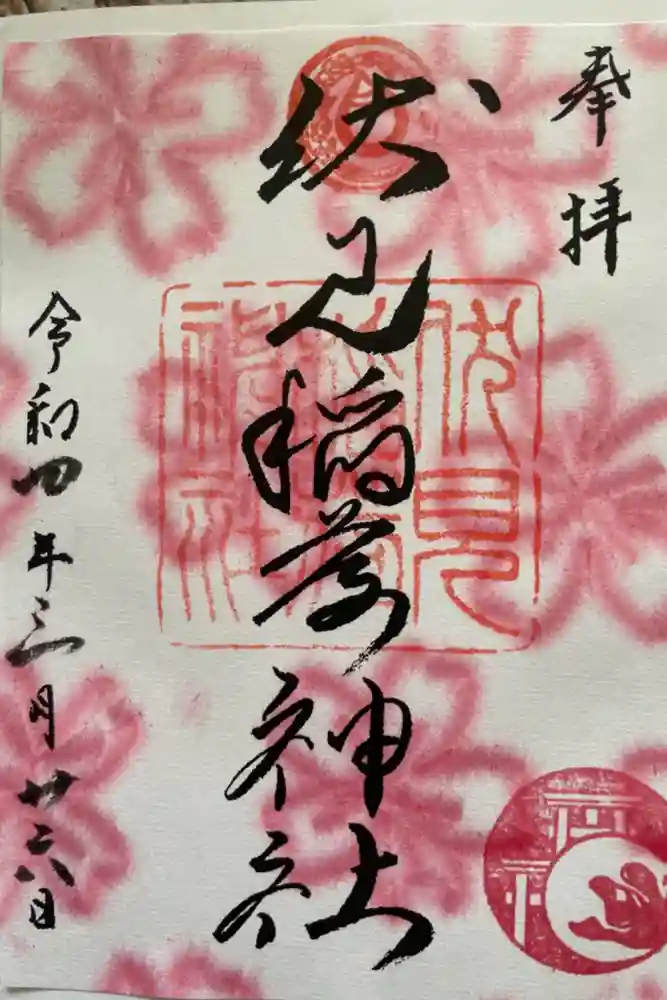 奉拝
伏見稲荷神社
伏見
稲荷
神社
令和四年三月廿六日